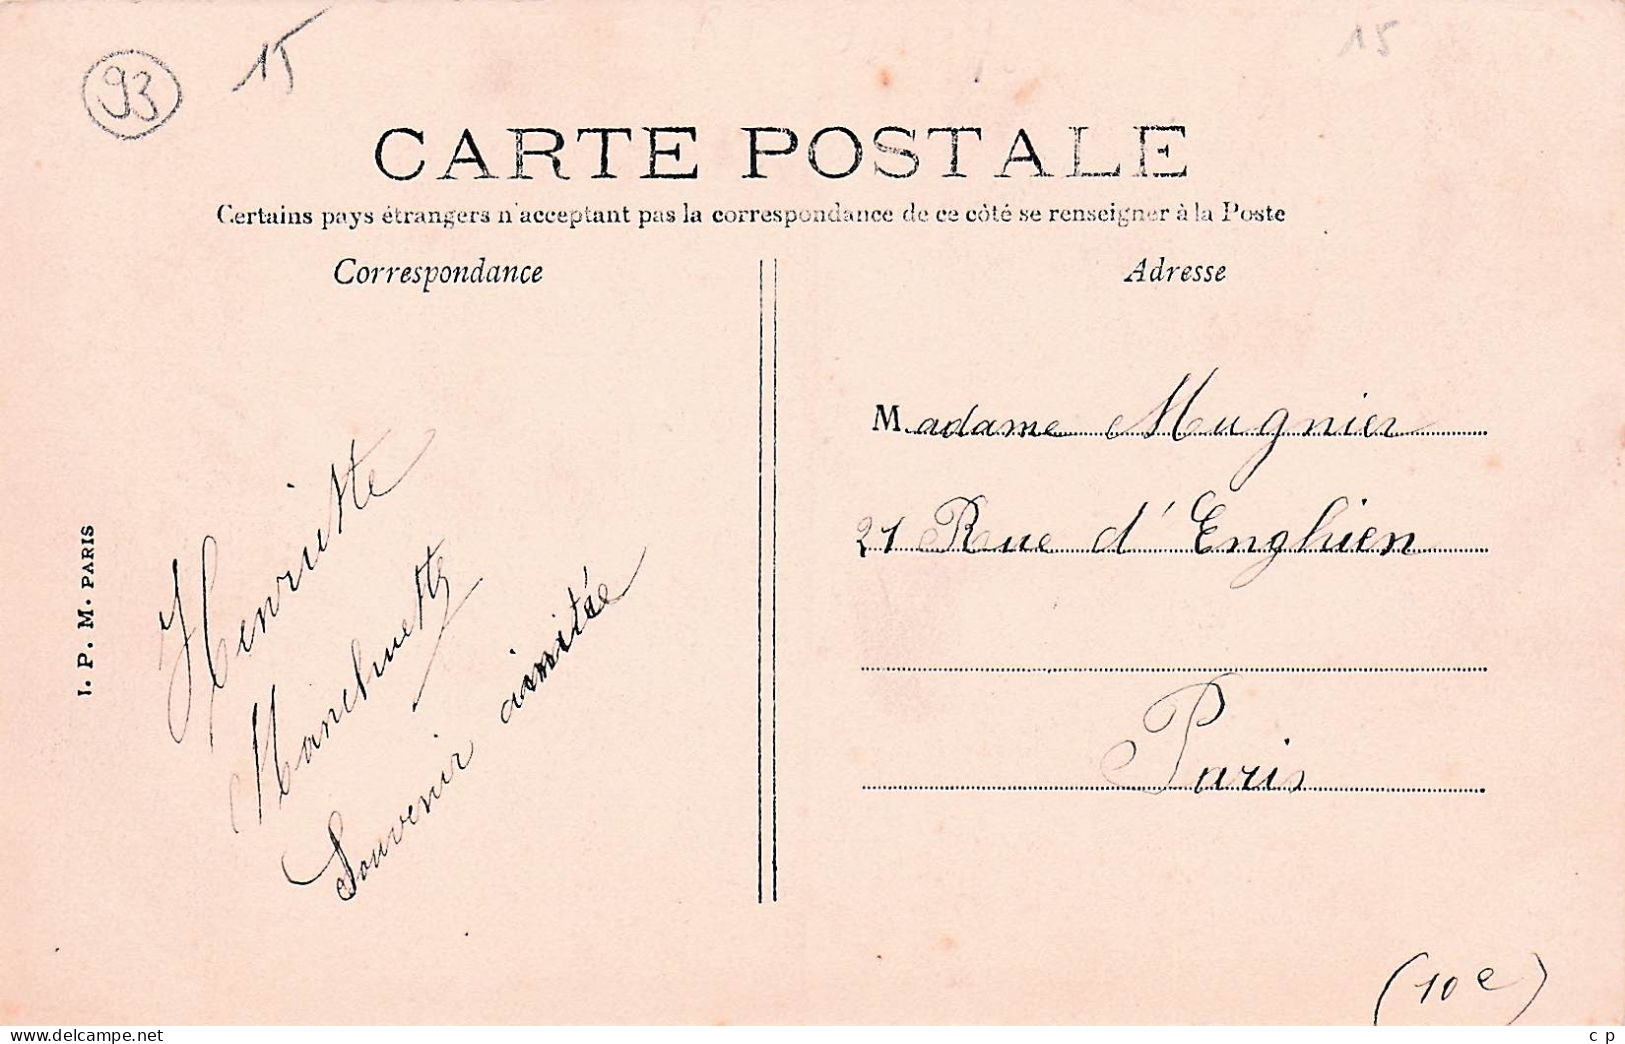 93
15
15
CARTE POSTALE
Certains pays étrangers n'acceptant pas la correspondance de ce côté se renseigner à la Poste
Correspondance
Adresse
Henriette
Souvenir amitée
I. P. M. PARIS
Madame Mugnier
21 Rue d'Enghien
Paris
(10e)
www.delcampe.net
cp